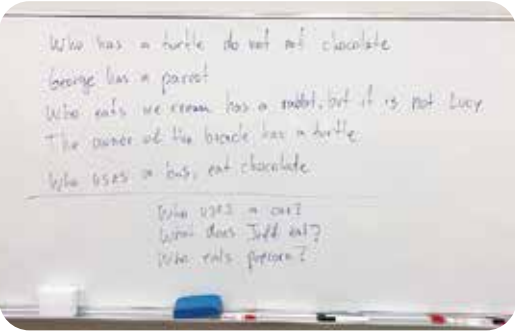 Who has a turtle do not eat chocolate
George has a parrot
Who eats ice cream has a rabbit, but it is not Lucy
The owner of the bicycle has a turtle
Who uses a bus, eat chocolate
Who uses a car?
What does Judd eat?
Who eats popcorn?